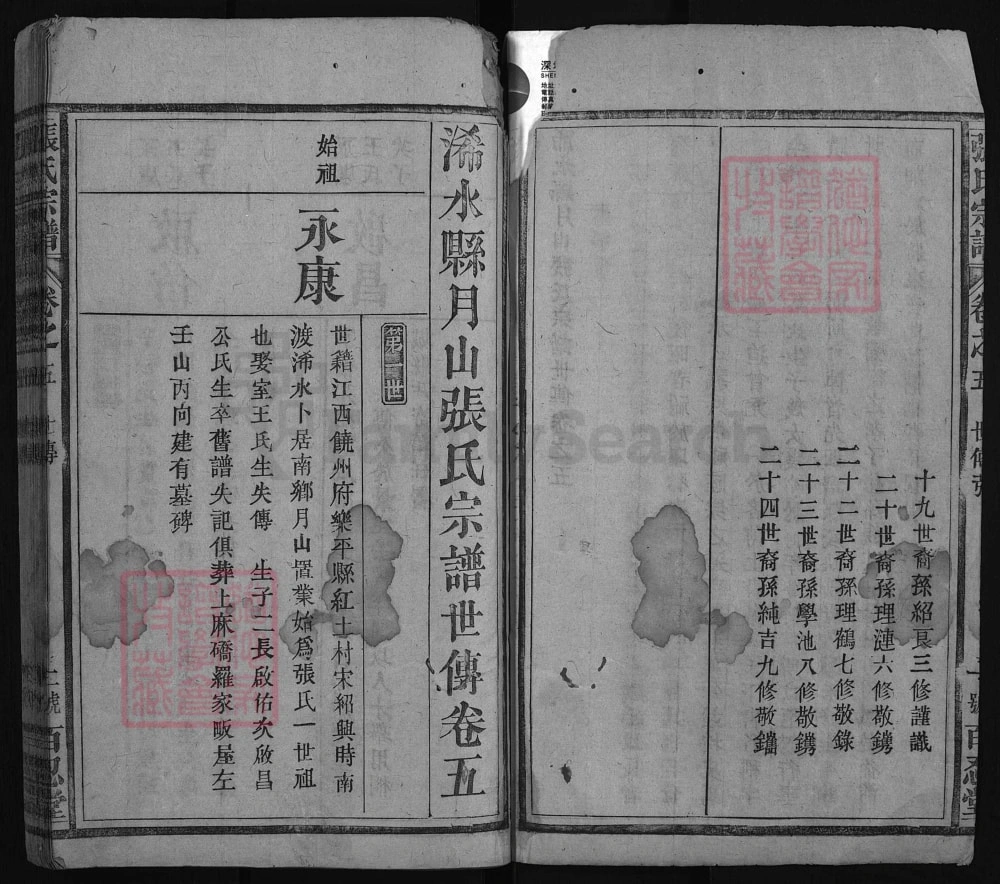 張氏宗譜
卷之五
世傳
百忍堂
十九世裔孫紹良三修謹識
二十世裔孫理漣六修敬鐫
二十二世裔孫理鶴七修敬錄
二十三世裔孫學池八修敬鐫
二十四世裔孫純吉九修敬鐫
浠水縣月山張氏宗譜世傳卷五
第一世
始祖
永康
世籍江西饒州府樂平縣紅土村宋紹興時南
渡浠水卜居南鄉月山置業始爲張氏一世祖
也娶室王氏生失傳 生子二長啟佑次啟昌
公氏生卒舊譜失記俱葬上麻磱羅家畈屋左
壬山丙向建有墓碑
張氏宗譜
卷之五
世傳
百忍堂
FamilySearch